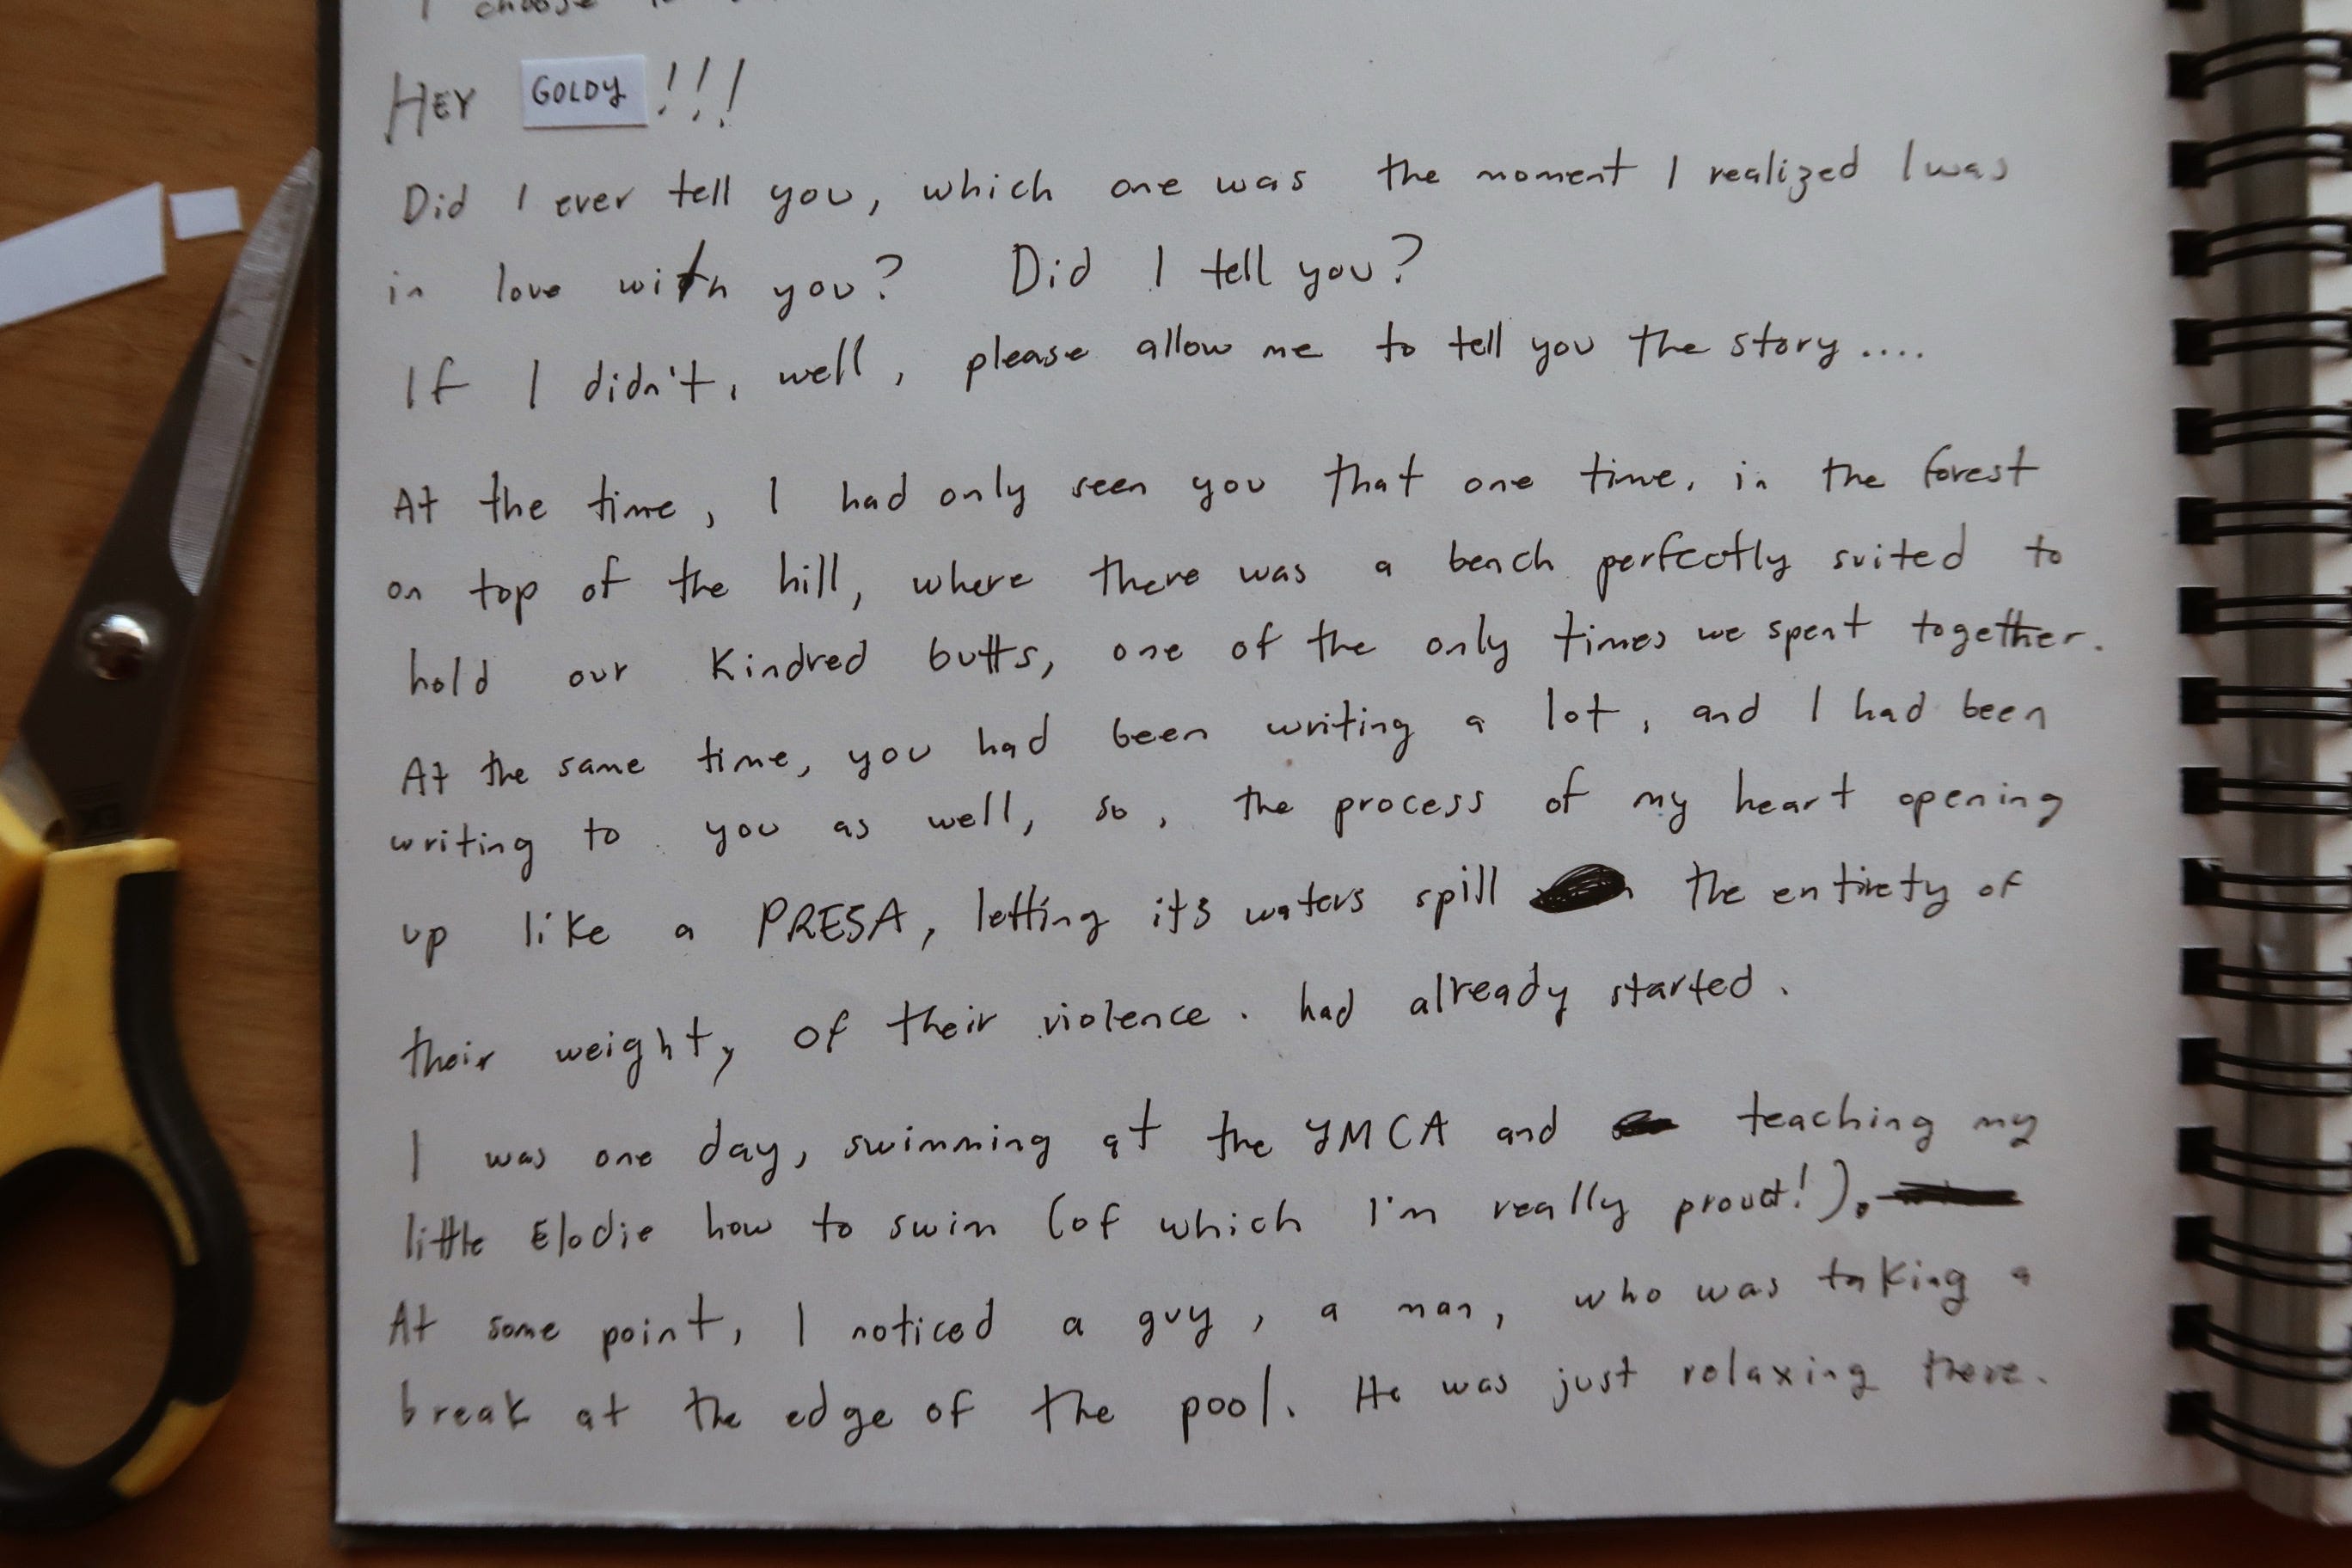 I choose
HEY GOLDY !!!
Did I ever tell you, which one was the moment I realized I was
in love with you? Did I tell you?
If I didn't, well, please allow me to tell you the story....
At the time, I had only seen you that one time, in the forest
on top of the hill, where there was a bench perfectly suited to
hold our kindred butts, one of the only times we spent together.
At the same time, you had been writing a lot, and I had been
writing to you as well, so, the process of my heart opening
up like a PRESA, letting its waters spill the entirety of
their weight, of their violence. had already started.
I was one day, swimming at the YMCA and teaching my
little Elodie how to swim (of which I'm really proud!).
At some point, I noticed a guy, a man, who was taking a
break at the edge of the pool. He was just relaxing there.